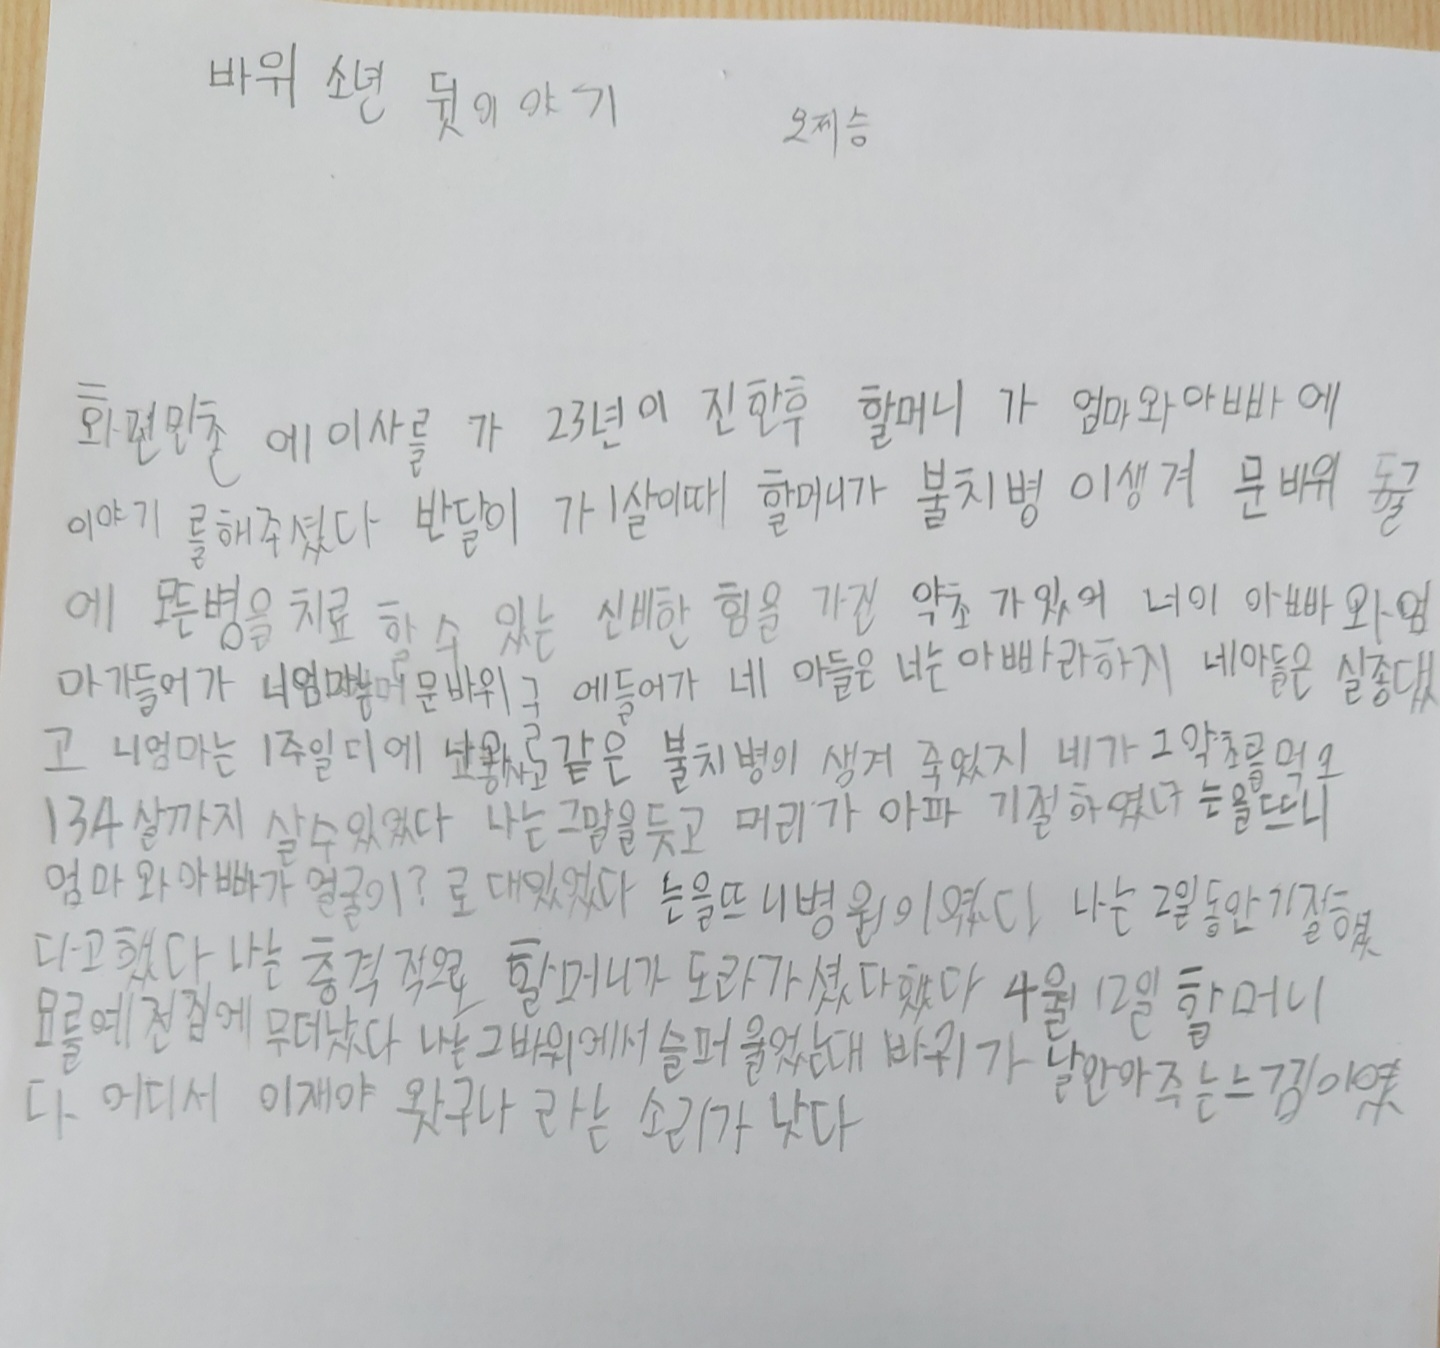 바위 소년 뒷이야기
오제승
화전민촌 에이사를 가 23년이 진한후 할머니 가 엄마와아빠에
이야기 를해주셨다 반달이 가1살이때 할머니가 불치병 이생겨 문바위 동굴
에 모든병을치료 할 수 있는 신비한 힘을 가진 약초가있어 너이 아빠와엄
마가들어가 너엄마는 문바위굴 에들어가 네 아들은 너는아빠라하지 네아들은 실종됐
고 니엄마는 1주일디에 같은 불치병이 생겨 죽었지 네가그약초를먹고
134살까지 살수있었다 나는그말을듯고 머리가 아파 기절하였다 는을뜨니
엄마와아빠가 얼굴이? 로 대있었다 는을뜨니병원이였다 나는2일동안기절했
다고했다 나는 충격적으로 할머니가 도라가셨다했다 4월 12일 할머니
묘를예전집에 무더났다 나는그바위에서슬퍼울었는대 바위가 날안아주는느낌이였
다 어디서 이재야 왓구나 라는 소리가 낫다